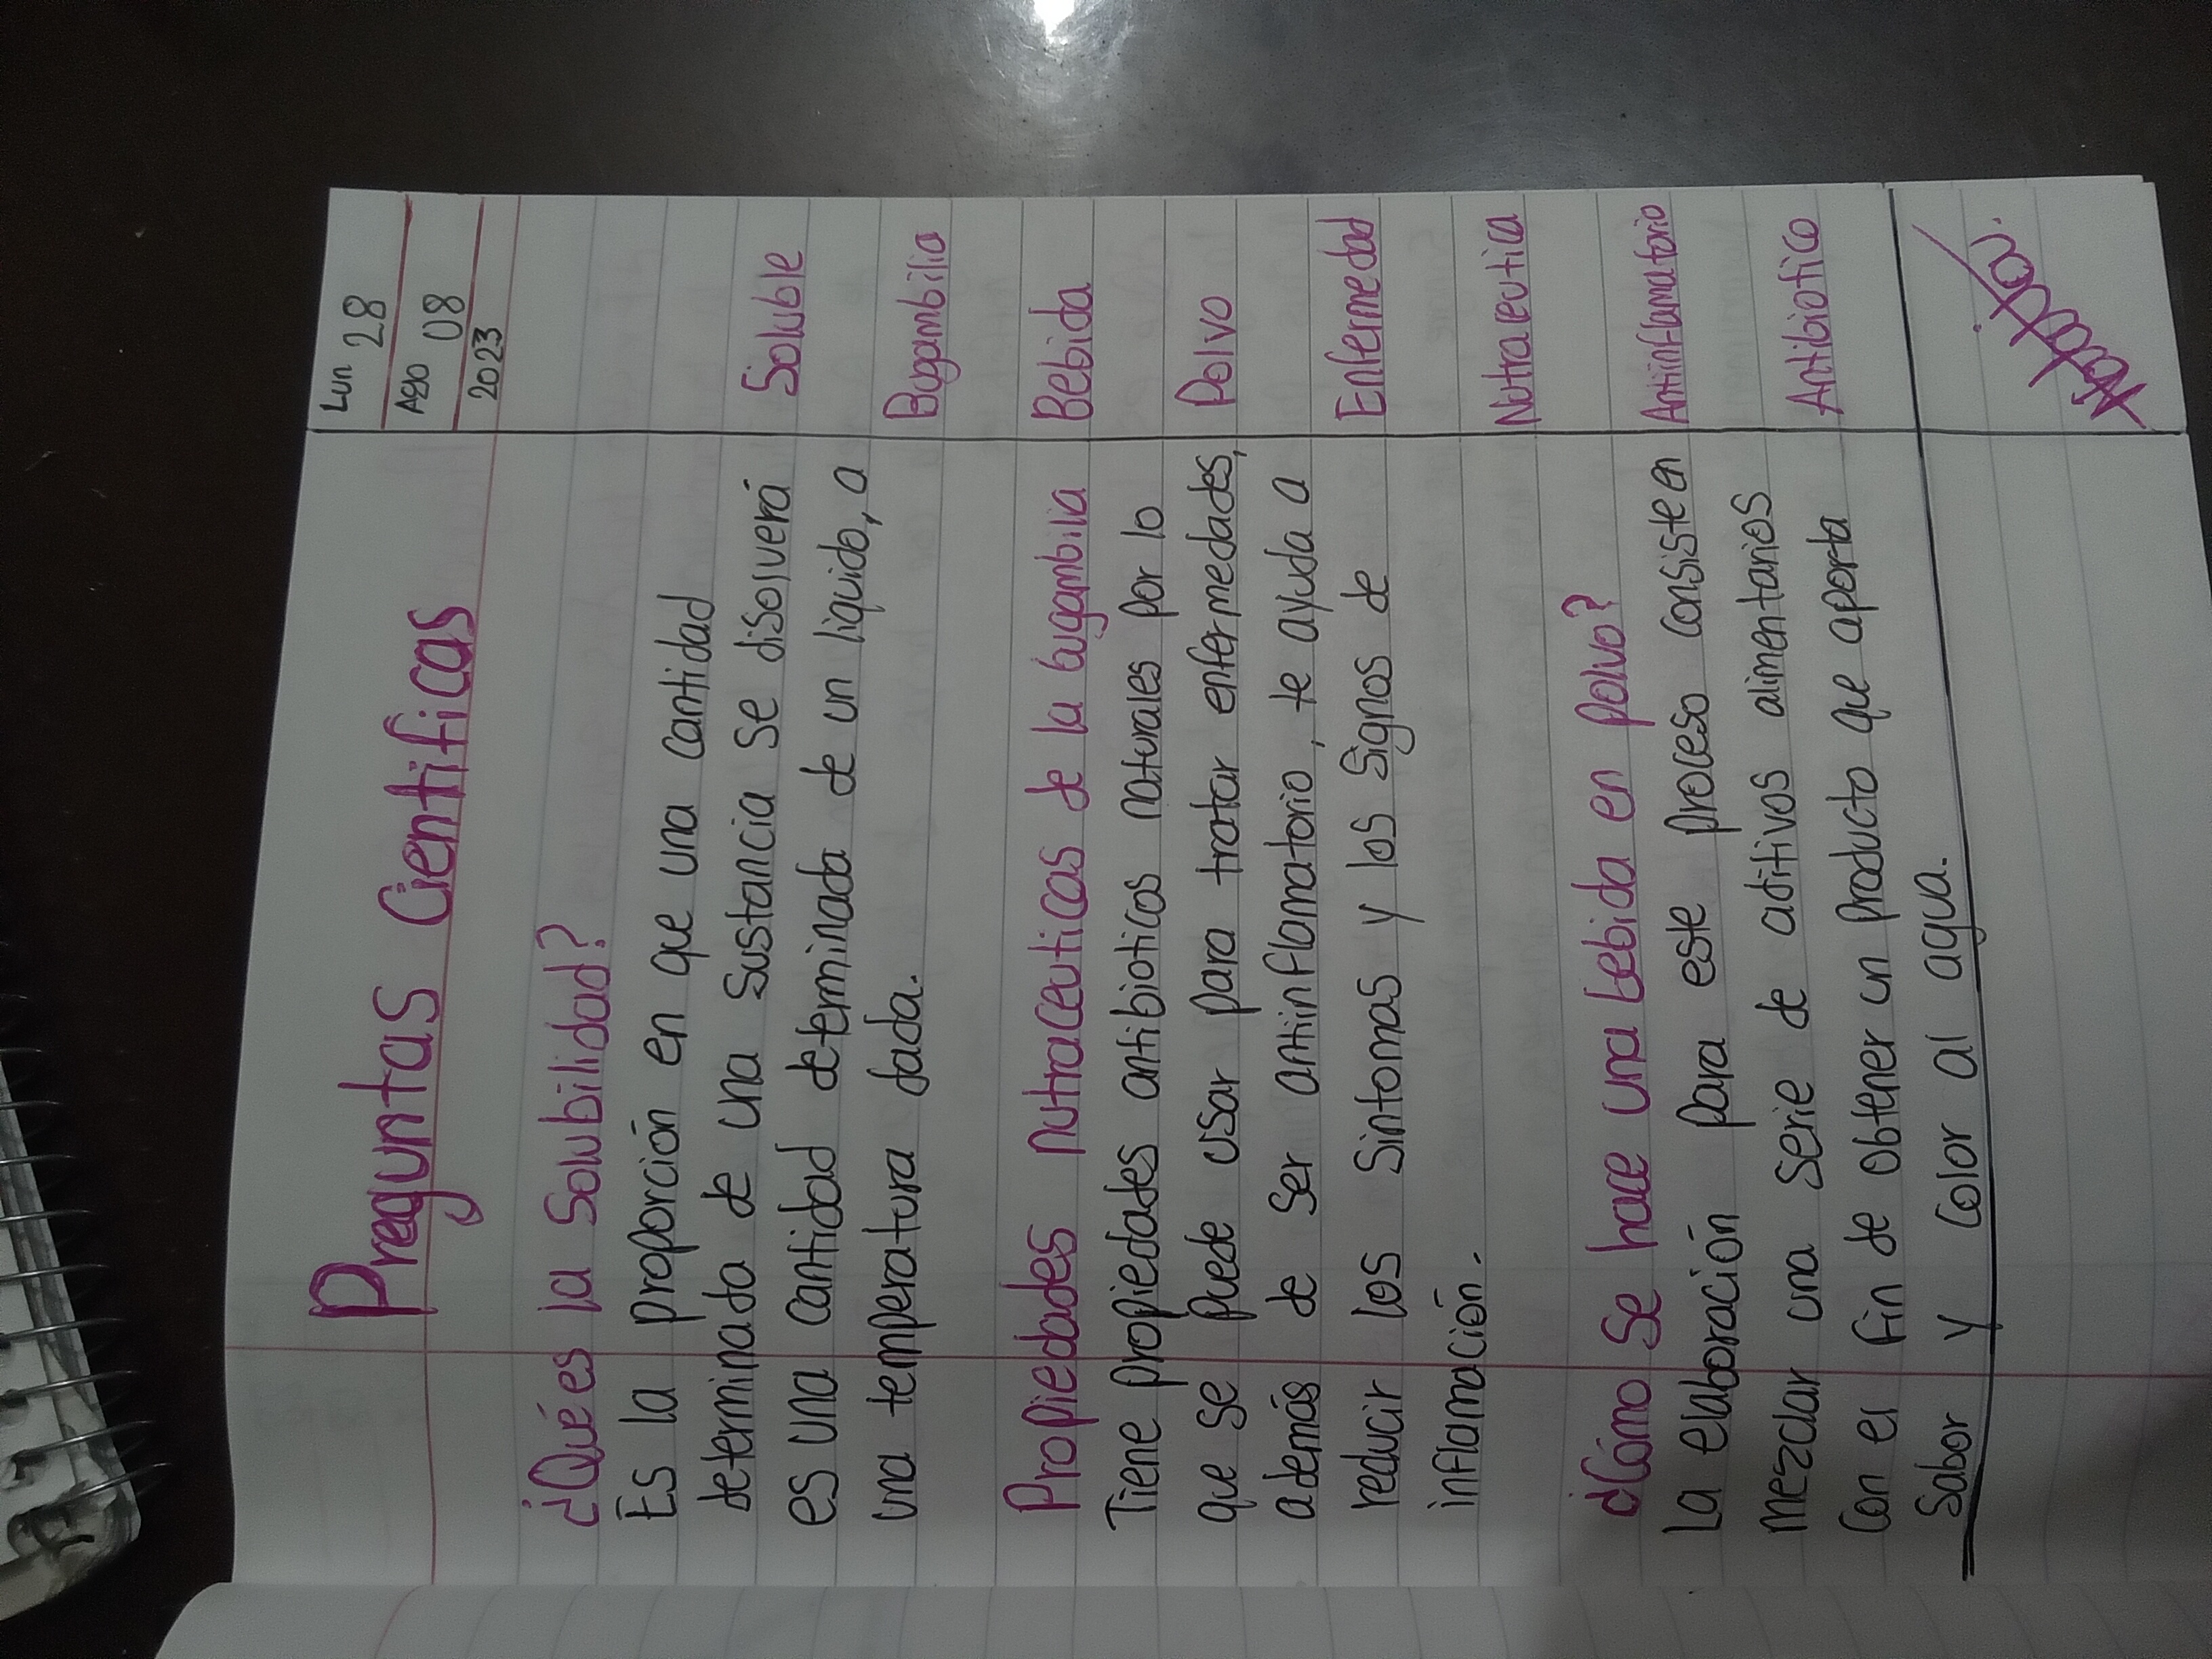 Lun 28
Ago 08
2023
Preguntas Cientificas
¿Qué es la Solubilidad?
Es la proporción en que una cantidad
determinada de una Sustancia se disolverá
es una cantidad determinada de un liquido, a
una temperatura dada.
Propiedades nutraceuticas de la bugambilia
Tiene propiedades antibioticas naturales por lo
que se puede usar para tratar enfermedades,
además de ser antiinflamatorio, te ayuda a
reducir los Sintomas y los Signos de
inflamación.
¿Cómo Se hace una bebida en polvo?
La elaboración para este proceso consiste en
mezclar una serie de aditivos alimentarios
Con el fin de obtener un producto que aporta
Sabor y Color al agua.
Soluble
Bugambilia
Bebida
Polvo
Enfermedad
Nutraeutica
Antiinflamatorio
Antibiotico